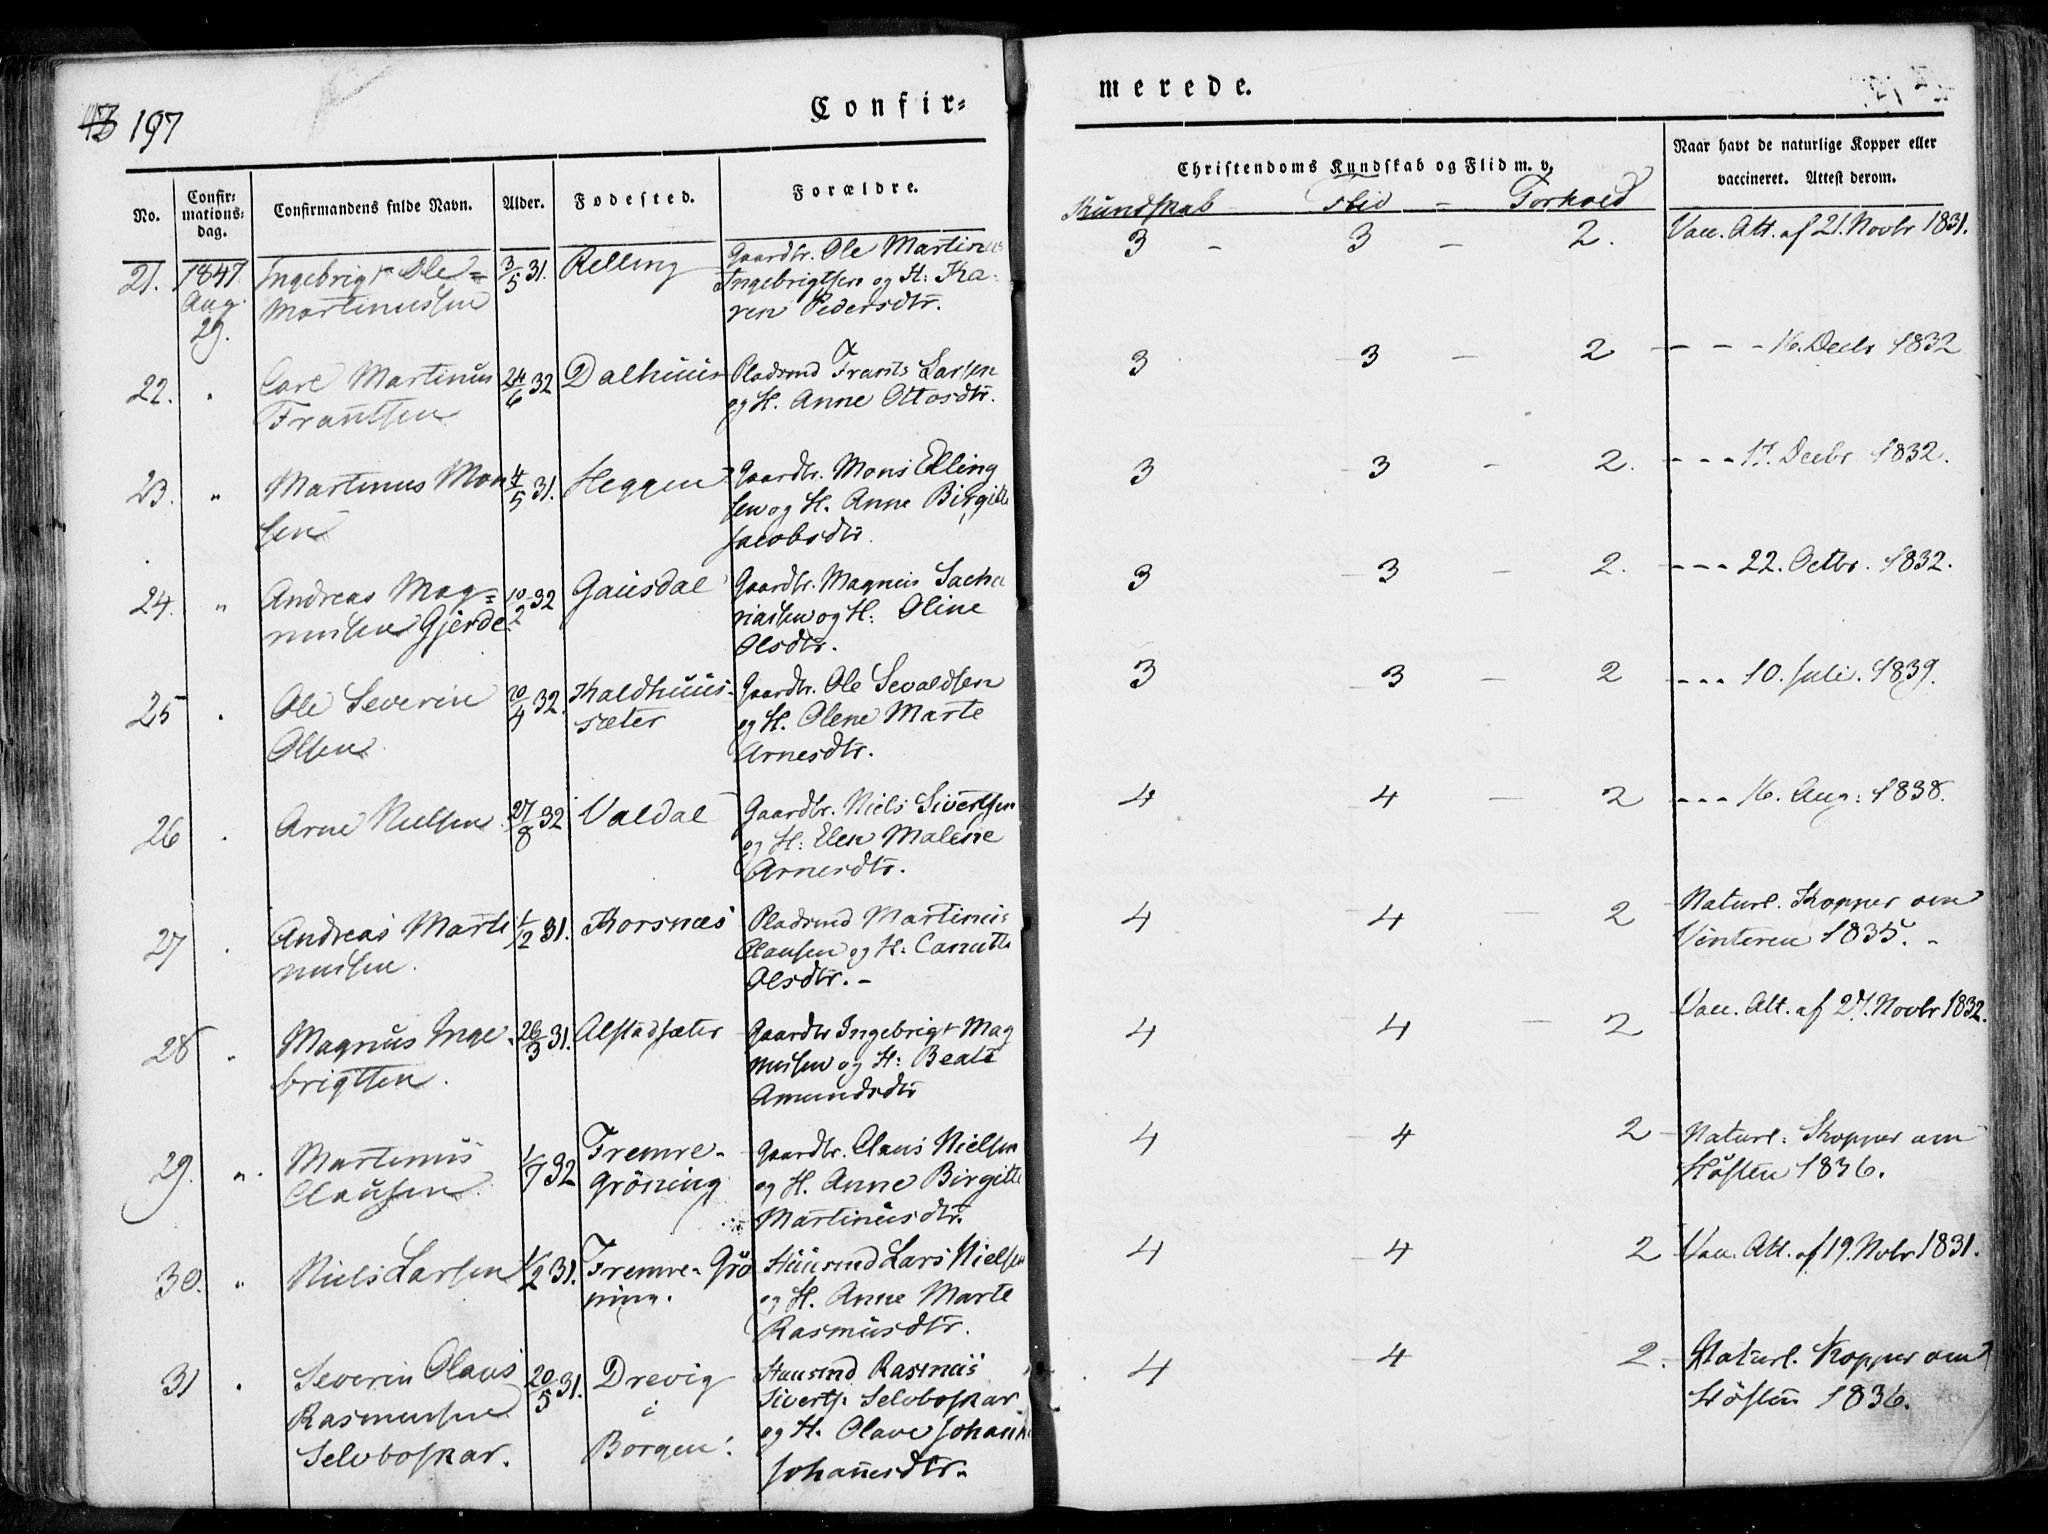 197
Confir=
merede.
No.
Confir=
mations=
dag.
Confirmandens fulde Navn.
Alder.
Fødested.
Forældre.
Christendoms Kundskab og Flid m. v.
Kundskab – Flid – Forhold
Naar havt de naturlige Kopper eller
vaccineret. Attest derom.
21. 1847 Aug. 29. Ingebrigt Ole=
Martinussen
3/5 31. Relling
Gaardbr. Ole Martinus
Ingebrigtsen og H: Ka-
ren Pedersdtr.
3 – 3 – 2. Vacc. Att. af 21. Novbr 1831.
22. " Carl Martinus
Frantsen
24/6 32 Dalhuus
Pladsmd Frants Larsen
og H. Anne Ottosdtr.
3 – 3 – 2 – – – 16. Decbr 1832
23. " Martinus Mon
sen
4/5 31. Heggen
Gaardbr. Mons Elling
sen og H. Anne Birgitte
Jacobsdtr.
3 – 3 – 2. – – – 17. Decbr. 1832.
24. " Andreas Mag=
nusen Gjerde
10/2 32 Gausdal
Gaardbr. Magnus Sacha
riasen og H: Oline
Olsdtr.
3 – 3 – 2. – – – 22. Octbr. 1832.
25 " Ole Severin
Olsen
20/4 32. Kaldhuus-
sæter
Gaardbr. Ole Sevaldsen
og H. Olene Marte
Arnesdtr.
3 – 3 – 2 – – – 10. Juli. 1839.
26 " Arne Nielsen
27/8 32 Valdal
Gaardbr. Niels Sivertsen
og H: Elen Malene
Arnesdtr.
4 – 4 – 2 – – – 16. Aug: 1838.
27 " Andreas Marti
nusen.
1/12 31. Korsnæs
Pladsmd Martinus
Clausen og H: Canutte
Olsdtr. –
4 – 4 – 2 Naturl. Kopper om
Vinteren 1835. –
28 " Magnus Inge-
brigtsen.
26/3 31. Alstadsæter
Gaardbr Ingebrigt Mag
nusen og H: Beate
Amundsdtr
4 – 4 – 2 Vacc. Att. af 27. Novbr 1832.
29. " Martinus
Clausen
1/7 32 Fremre-
Grøning
Gaardbr. Claus Nielsen
og H. Anne Birgitte
Martinusdtr.
4 – 4 2 Naturl: Kopper om
Høsten 1836.
30. " Niels Larsen
1/2 31. Fremre-Grø
ning.
Huusmd Lars Nielsen
og H. Anne Marte
Rasmusdtr.
4 – 4 2 Vacc. Att. af 19. Nobr 1831.
31 " Severin Olaus
Rasmussen
Selvboskar.
20/5 31. Drevig
i
Borgen.
Huusmd Rasmus
Siverts. Selvboskar
og H. Olave Johanne
Johannesdtr.
4 – 4 2. Naturl. Kopper om
Høsten 1836.